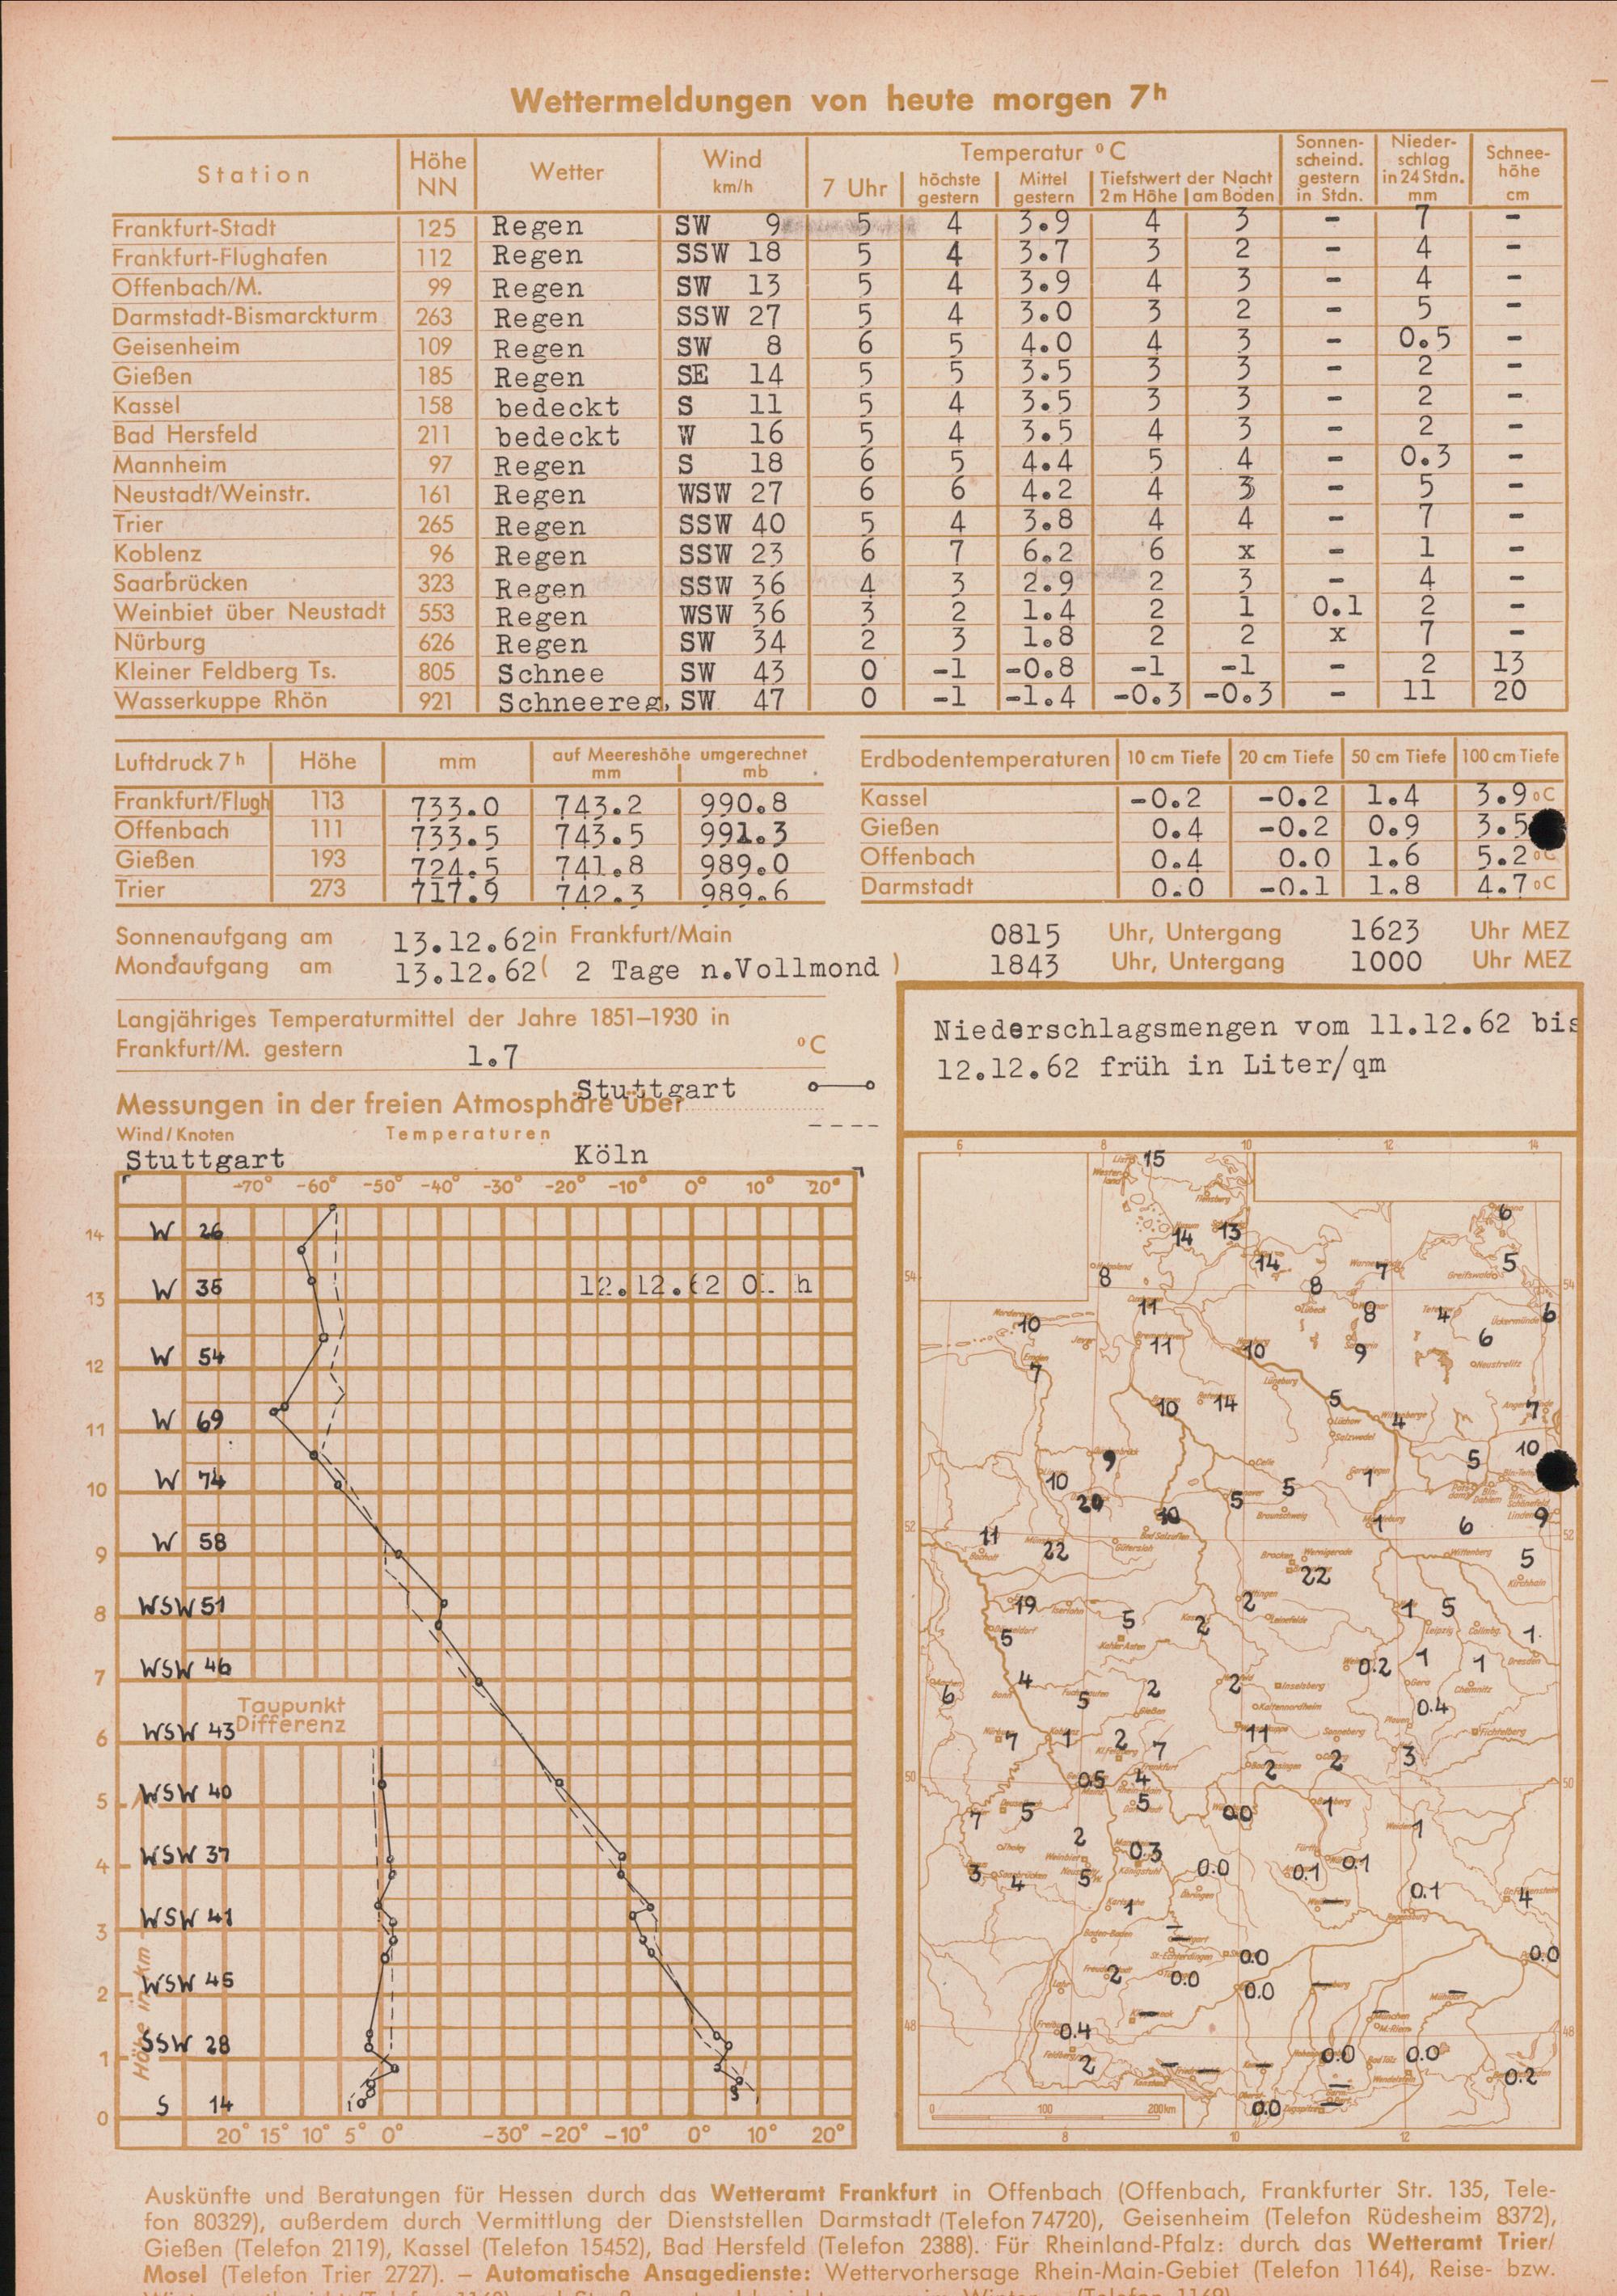 Wettermeldungen von heute morgen 7h
Station Höhe NN Wetter Wind km/h Temperatur °C 7 Uhr höchste gestern Mittel gestern Tiefstwert der Nacht 2m Höhe am Boden Sonnenscheind. gestern in Stdn. Niederschlag in 24 Stdn. mm Schneehöhe cm
Frankfurt-Stadt 125 Regen SW 9 5 4 3.9 4 3 - 7 -
Frankfurt-Flughafen 112 Regen SSW 18 5 4 3.7 3 2 - 4 -
Offenbach/M. 99 Regen SW 13 5 4 3.9 4 3 - 4 -
Darmstadt-Bismarckturm 263 Regen SSW 27 5 4 3.0 3 2 - 5 -
Geisenheim 109 Regen SW 8 6 5 4.0 4 3 - 0.5 -
Gießen 185 Regen SE 14 5 5 3.5 3 3 - 2 -
Kassel 158 bedeckt S 11 5 4 3.5 3 3 - 2 -
Bad Hersfeld 211 bedeckt W 16 5 4 3.5 4 3 - 2 -
Mannheim 97 Regen S 18 6 5 4.4 5 4 - 0.3 -
Neustadt/Weinstr. 161 Regen WSW 27 6 6 4.2 4 3 - 5 -
Trier 265 Regen SSW 40 5 4 3.8 4 4 - 7 -
Koblenz 96 Regen SSW 23 6 7 6.2 6 x - 1 -
Saarbrücken 323 Regen SSW 36 4 3 2.9 2 3 - 4 -
Weinbiet über Neustadt 553 Regen WSW 36 3 2 1.4 2 1 0.1 2 -
Nürburg 626 Regen SW 34 2 3 1.8 2 2 x 7 -
Kleiner Feldberg Ts. 805 Schnee SW 43 0 -1 -0.8 -1 -1 - 2 13
Wasserkuppe Rhön 921 Schneereg. SW 47 0 -1 -1.4 -0.3 -0.3 - 11 20
Luftdruck 7h Höhe mm auf Meereshöhe umgerechnet mm mb
Frankfurt/Flugh 113 733.0 743.2 990.8
Offenbach 111 733.5 743.5 991.3
Gießen 193 724.5 741.8 989.0
Trier 273 717.9 742.3 989.6
Erdbodentemperaturen 10 cm Tiefe 20 cm Tiefe 50 cm Tiefe 100 cm Tiefe
Kassel -0.2 -0.2 1.4 3.9 °C
Gießen 0.4 -0.2 0.9 3.5
Offenbach 0.4 0.0 1.6 5.2 °C
Darmstadt 0.0 -0.1 1.8 4.7 °C
Sonnenaufgang am 13.12.62 in Frankfurt/Main 0815 Uhr, Untergang 1623 Uhr MEZ
Mondaufgang am 13.12.62 ( 2 Tage n.Vollmond ) 1843 Uhr, Untergang 1000 Uhr MEZ
Langjähriges Temperaturmittel der Jahre 1851–1930 in
Frankfurt/M. gestern 1.7 °C
Messungen in der freien Atmosphäre über Stuttgart
Wind/Knoten Temperaturen
Stuttgart Köln
-70° -60° -50° -40° -30° -20° -10° 0° 10° 20°
14 W 26
13 W 36 12.12.62 h
12 W 54
11 W 69
10 W 74
9 W 58
8 WSW 51
7 WSW 46
Taupunkt
Differenz
6 WSW 43
5 WSW 40
4 WSW 37
3 WSW 41
2 WSW 45
1 SSW 28
0 S 14
Höhe in km
20° 15° 10° 5° 0° -30° -20° -10° 0° 10° 20°
Niederschlagsmengen vom 11.12.62 bis
12.12.62 früh in Liter/qm
6 8 10 12 14
15
14 13 14 6
8 8 7 5
10 11 8 4 6
11 10 9 6
7
10 14 5 4 7
9 10 20 10 5 5 1 5 10
11 22 1 6 9
22 5
19 5 2 1 5
5 2 1
4 5 2 2 0.2 1 1
6 0.4
7 1 2 7 11 2 3
0.5 4 2
7 5 5 0.0 1 1
2 0.3 0.0 0.1 0.1
3 4 5 0.1 4
1
0.0 0.0
2 0.0 0.0
0.4
2 0.0 0.0 0.2
0.0
0 100 200km
8 10 12
Auskünfte und Beratungen für Hessen durch das Wetteramt Frankfurt in Offenbach (Offenbach, Frankfurter Str. 135, Tele-
fon 80329), außerdem durch Vermittlung der Dienststellen Darmstadt (Telefon 74720), Geisenheim (Telefon Rüdesheim 8372),
Gießen (Telefon 2119), Kassel (Telefon 15452), Bad Hersfeld (Telefon 2388). Für Rheinland-Pfalz: durch das Wetteramt Trier/
Mosel (Telefon Trier 2727). – Automatische Ansagedienste: Wettervorhersage Rhein-Main-Gebiet (Telefon 1164), Reise- bzw.